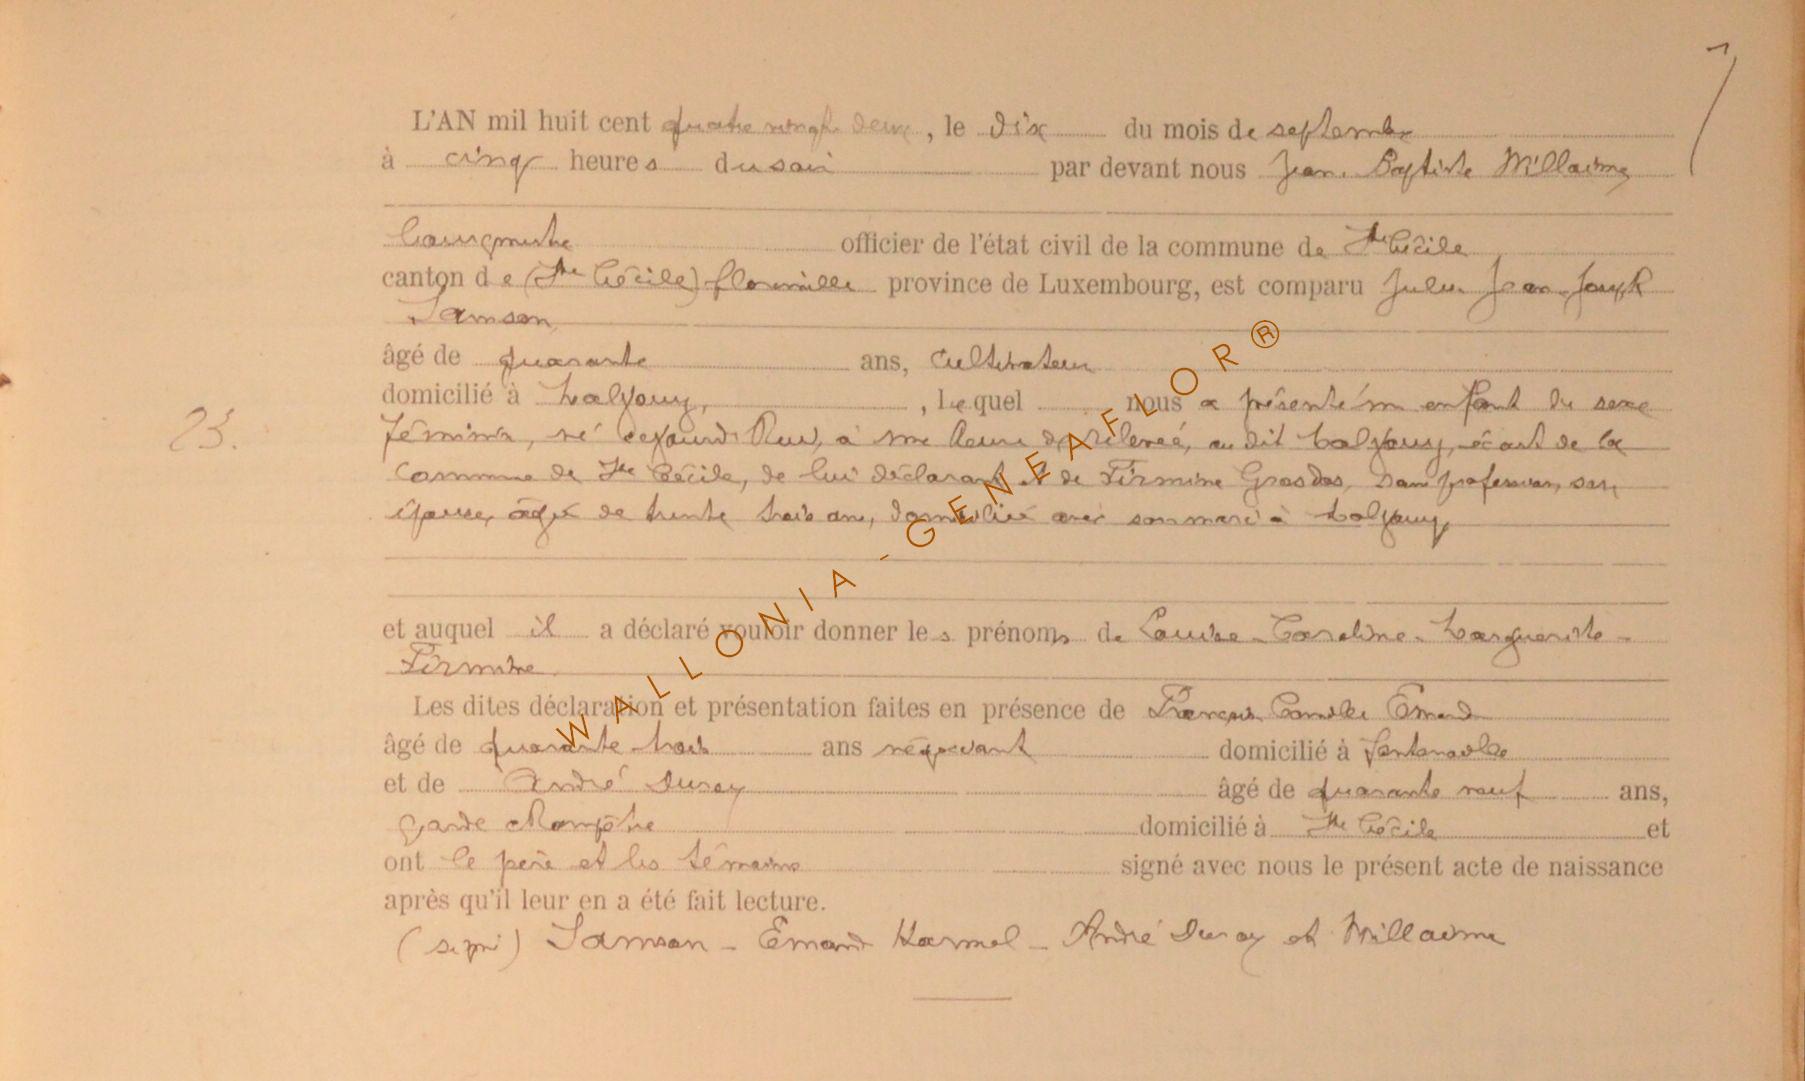 7
L'AN mil huit cent quatre vingt deux, le dix du mois de septembre
à cinq heures du soir par devant nous Jean Baptiste Willaime
bourgmestre officier de l'état civil de la commune de Ste Cécile
canton de (Ste Cécile) florenville province de Luxembourg, est comparu Jules Jean Joseph
Samson
âgé de quarante ans, cultivateur
domicilié à , Lequel nous a présenté un enfant du sexe
23.
féminin, né aujourd'hui, à une heure de relevée, au dit , écart de la
commune de Ste Cécile, de lui déclarant et de Firmine Grosdos, sans profession, son
épouse, âgée de trente trois ans, domiciliée avec son mari à
et auquel il a déclaré vouloir donner les prénoms de Louise - Caroline - Marguerite -
Firmine
Les dites déclaration et présentation faites en présence de François Camille Emond
âgé de quarante trois ans négociant domicilié à Fontenoille
et de André Duroy âgé de quarante neuf ans,
garde champêtre domicilié à Ste Cécile et
ont le père et les témoins signé avec nous le présent acte de naissance
après qu'il leur en a été fait lecture.
(signé) Samson - Emond Harmel - André Duroy et Willaime
WALLONIA - GENEAFLOR®